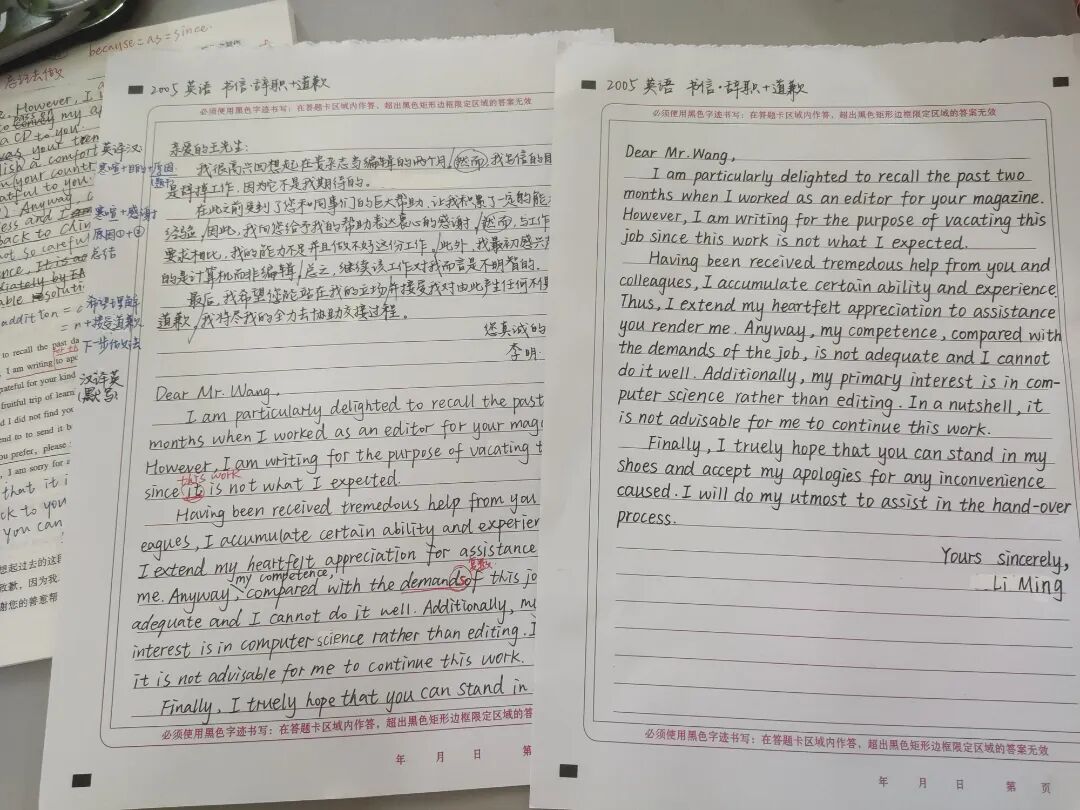 because=as=since.
However, I
a CD to you
addition = c
to recall the past da
I am writing to apo
grateful for your kind
fruitful trip of learn
d I did not find you
end to to send it b
ou prefer, please
, I am sorry for
that it i
ck to you
You can
想起过去的这段
致歉，因为我
谢您的答意帮
2005 英语 书信·辞职+道歉
必须使用黑色字迹书写：在答题卡区域内作答，超出黑色矩形边框限定区域的答案无效
英译汉:
寒暄+目的+原因
寒暄+感谢
原因①+②
总结
希望理解
=n+接受道歉
下一步做法
汉译英
(默写)
亲爱的王先生:
我很高兴回想起在贵杂志当编辑的两个月,然而 我写信的目
是辞掉工作,因为它不是我期待的。
在此之前受到了您和同事们的巨大帮助,让我积累了一定的能
经验,因此,我向您给予我的帮助表达衷心的感谢,然而,与工作
要求相比,我的能力不足并且做不好这份工作,此外,我最初感兴趣
的是计算机而非编辑,总之,继续该工作对我而言是不明智的.
最后,我希望您能站在我的立场并接受我对由此产生任何不便
道歉,我将尽我的全力去协助交接过程。
您真诚的
李明
Dear Mr. Wang,
I am particularly delighted to recall the past
months when I worked as an editor for your mag
However, I am writing for the purpose of vacating t
this work
since it is not what I expected.
Having been received tremedous help from you
eagues, I accumulate certain ability and experien
I extend my heartfelt appreciation for assistance
my competence,
me. Anyway, compared with the demands of this jo
adequate and I cannot do it well. Additionally, my
interest is in computer science rather than editing. I
it is not advisable for me to continue this work.
Finally, I truely hope that you can stand in
必须使用黑色字迹书写：在答题卡区域内作答，超出黑色矩形边框限定区域的答
年 月 日 第
2005 英语 书信·辞职+道歉
必须使用黑色字迹书写：在答题卡区域内作答，超出黑色矩形边框限定区域的答案无效
Dear Mr. Wang,
I am particularly delighted to recall the past two
months when I worked as an editor for your magazine.
However, I am writing for the purpose of vacating this
job since this work is not what I expected.
Having been received tremedous help from you and
colleagues, I accumulate certain ability and experience.
Thus, I extend my heartfelt appreciation to assistance
you render me. Anyway, my competence, compared with
the demands of the job, is not adequate and I cannot
do it well. Additionally, my primary interest is in com-
puter science rather than editing. In a nutshell, it
is not advisable for me to continue this work.
Finally, I truely hope that you can stand in my
shoes and accept my apologies for any inconvenience
caused. I will do my utmost to assist in the hand-over
process.
Yours sincerely,
Li Ming
必须使用黑色字迹书写：在答题卡区域内作答，超出黑色矩形边框限定区域的答案无效
年 月 日 第 页